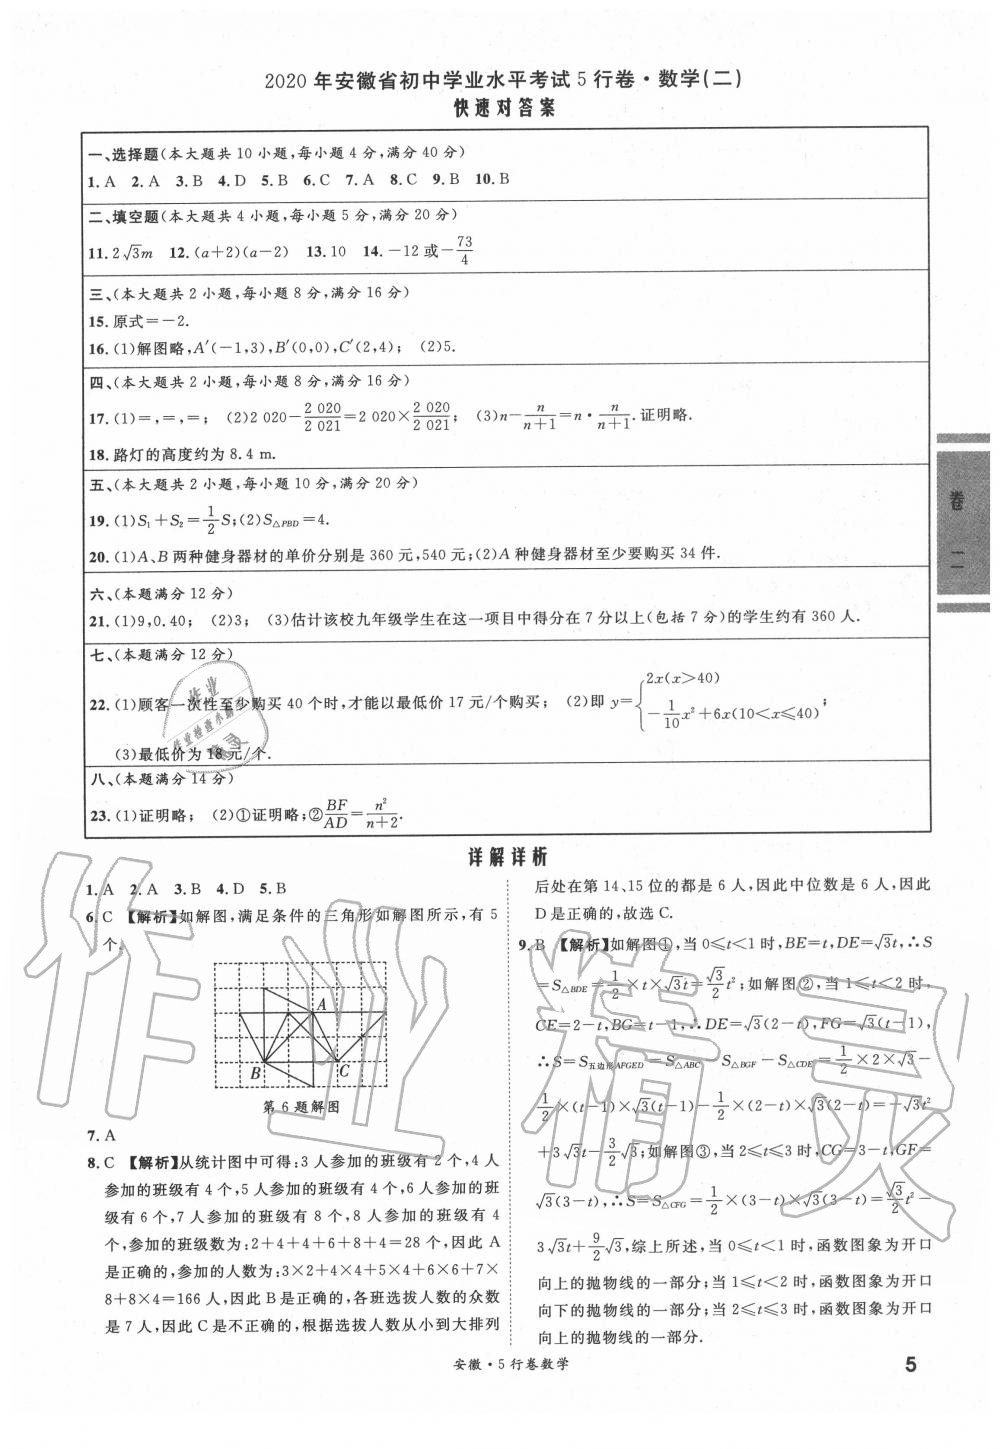 2020 年安徽省初中学业水平考试 5 行卷·数学(二)
快速对答案
一、选择题(本大题共 10 小题,每小题 4 分,满分 40 分)
1. A 2. A 3. B 4. D 5. B 6. C 7. A 8. C 9. B 10. B
二、填空题(本大题共 4 小题,每小题 5 分,满分 20 分)
11. 2√3m 12. (a+2)(a-2) 13. 10 14. -12 或 -73/4
三、(本大题共 2 小题,每小题 8 分,满分 16 分)
15. 原式=-2.
16. (1)解图略,A′(-1,3),B′(0,0),C′(2,4); (2)5.
四、(本大题共 2 小题,每小题 8 分,满分 16 分)
17. (1)=,=,=; (2)2 020-2 020/2 021=2 020×2 020/2 021; (3)n-n/(n+1)=n·n/(n+1).证明略.
18. 路灯的高度约为 8.4 m.
五、(本大题共 2 小题,每小题 10 分,满分 20 分)
19. (1)S₁+S₂=1/2 S;(2)S△PBD=4.
20. (1)A、B 两种健身器材的单价分别是 360 元,540 元;(2)A 种健身器材至少要购买 34 件.
六、(本题满分 12 分)
21. (1)9,0.40; (2)3; (3)估计该校九年级学生在这一项目中得分在 7 分以上(包括 7 分)的学生约有 360 人.
七、(本题满分 12 分)
22. (1)顾客一次性至少购买 40 个时,才能以最低价 17 元/个购买; (2)即 y={2x(x>40) -1/10 x²+6x(10<x≤40);
(3)最低价为 18 元/个.
八、(本题满分 14 分)
23. (1)证明略; (2)①证明略;②BF/AD=n²/(n+2).
卷二
详解详析
1. A 2. A 3. B 4. D 5. B
6. C 【解析】如解图,满足条件的三角形如解图所示,有 5
个.
A
B
C
第 6 题解图
7. A
8. C 【解析】从统计图中可得:3 人参加的班级有 2 个,4 人
参加的班级有 4 个,5 人参加的班级有 4 个,6 人参加的班
级有 6 个,7 人参加的班级有 8 个,8 人参加的班级有 4
个,参加的班级数为:2+4+4+6+8+4=28 个,因此 A
是正确的,参加的人数为:3×2+4×4+5×4+6×6+7×
8+8×4=166 人,因此 B 是正确的,各班选拔人数的众数
是 7 人,因此 C 是不正确的,根据选拔人数从小到大排列
后处在第 14、15 位的都是 6 人,因此中位数是 6 人,因此
D 是正确的,故选 C.
9. B 【解析】如解图①,当 0≤t<1 时,BE=t,DE=√3t,∴S
=S△BDE=1/2×t×√3t=√3/2 t²;如解图②,当 1≤t<2 时,
CE=2-t,BG=t-1,∴DE=√3(2-t),FG=√3(t-1),
∴S=S五边形AFGED=S△ABC-S△BGF-S△CDE=1/2×2×√3-
1/2×(t-1)×√3(t-1)-1/2×(2-t)×√3(2-t)=-√3t²
+3√3t-3/2√3;如解图③,当 2≤t≤3 时,CG=3-t,GF=
√3(3-t),∴S=S△CFG=1/2×(3-t)×√3(3-t)=√3/2 t²-
3√3t+9/2√3,综上所述,当 0≤t<1 时,函数图象为开口
向上的抛物线的一部分;当 1≤t<2 时,函数图象为开口
向下的抛物线的一部分;当 2≤t≤3 时,函数图象为开口
向上的抛物线的一部分.
安徽·5 行卷数学
5
作业精灵